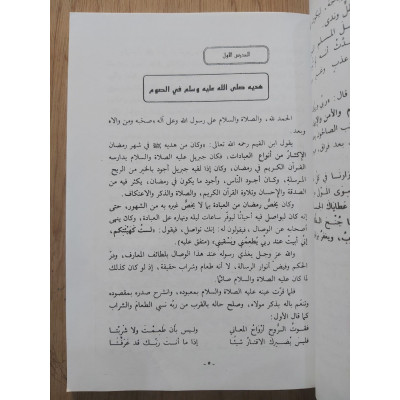 الدرس الأول
هديه صلى الله عليه وسلم في الصوم
الحمد لله، والصلاة والسلام على رسول الله وعلى آله وصحبه ومن والاه
وبعد
يقول ابن القيم رحمه الله تعالى: «وكان من هديه ﷺ في شهر رمضان
الإكثار من أنواع العبادات، فكان جبريل عليه الصلاة والسلام يدارسه
القرآن الكريم في رمضان، وكان إذا لقيه جبريل أجود بالخير من الريح
المرسلة، وكان أجود الناس، وأجود ما يكون في رمضان، يكثر فيه من
الصدقة والإحسان وتلاوة القرآن الكريم، والصلاة والذكر والاعتكاف.
وكان يخصُّ رمضان من العبادة بما لا يخصُّ غيره به من الشهور، حتى
إنه كان ليواصل فيه أحيانًا ليوفّر ساعات ليله ونهاره على العبادة، وكان
ينهى أصحابه عن الوصال، فيقولون له: إنك تواصل، فيقول: «لستُ كهيئتكم،
إني أبيتُ عند ربي يُطعمني ويسقيني» (متفق عليه).
والله عز وجل يغذي رسوله عند هذا الوصال بلطائف المعارف، ودُرر
الحكم وفيض أنوار الرسالة، لا أنه طعام وشراب حقيقة، إذ لو كان كذلك
لما كان عليه الصلاة والسلام صائمًا.
فلما قرت عينه عليه الصلاة والسلام بمعبوده، وانشرح صدره بمقصوده
وتنعّم باله بذكر مولاه، وصلح حاله بالقرب من ربّه نسي الطعام والشراب
كما قال الأول:
فقوتُ الرُّوح أرواحُ المعاني وليس بأن طَعِمتَ ولا شَرِبْتَا
فليس يضيرك الإقتارُ شيئًا إذا ما أنت ربَّك قد عَرَفْتَا
- ٥ -